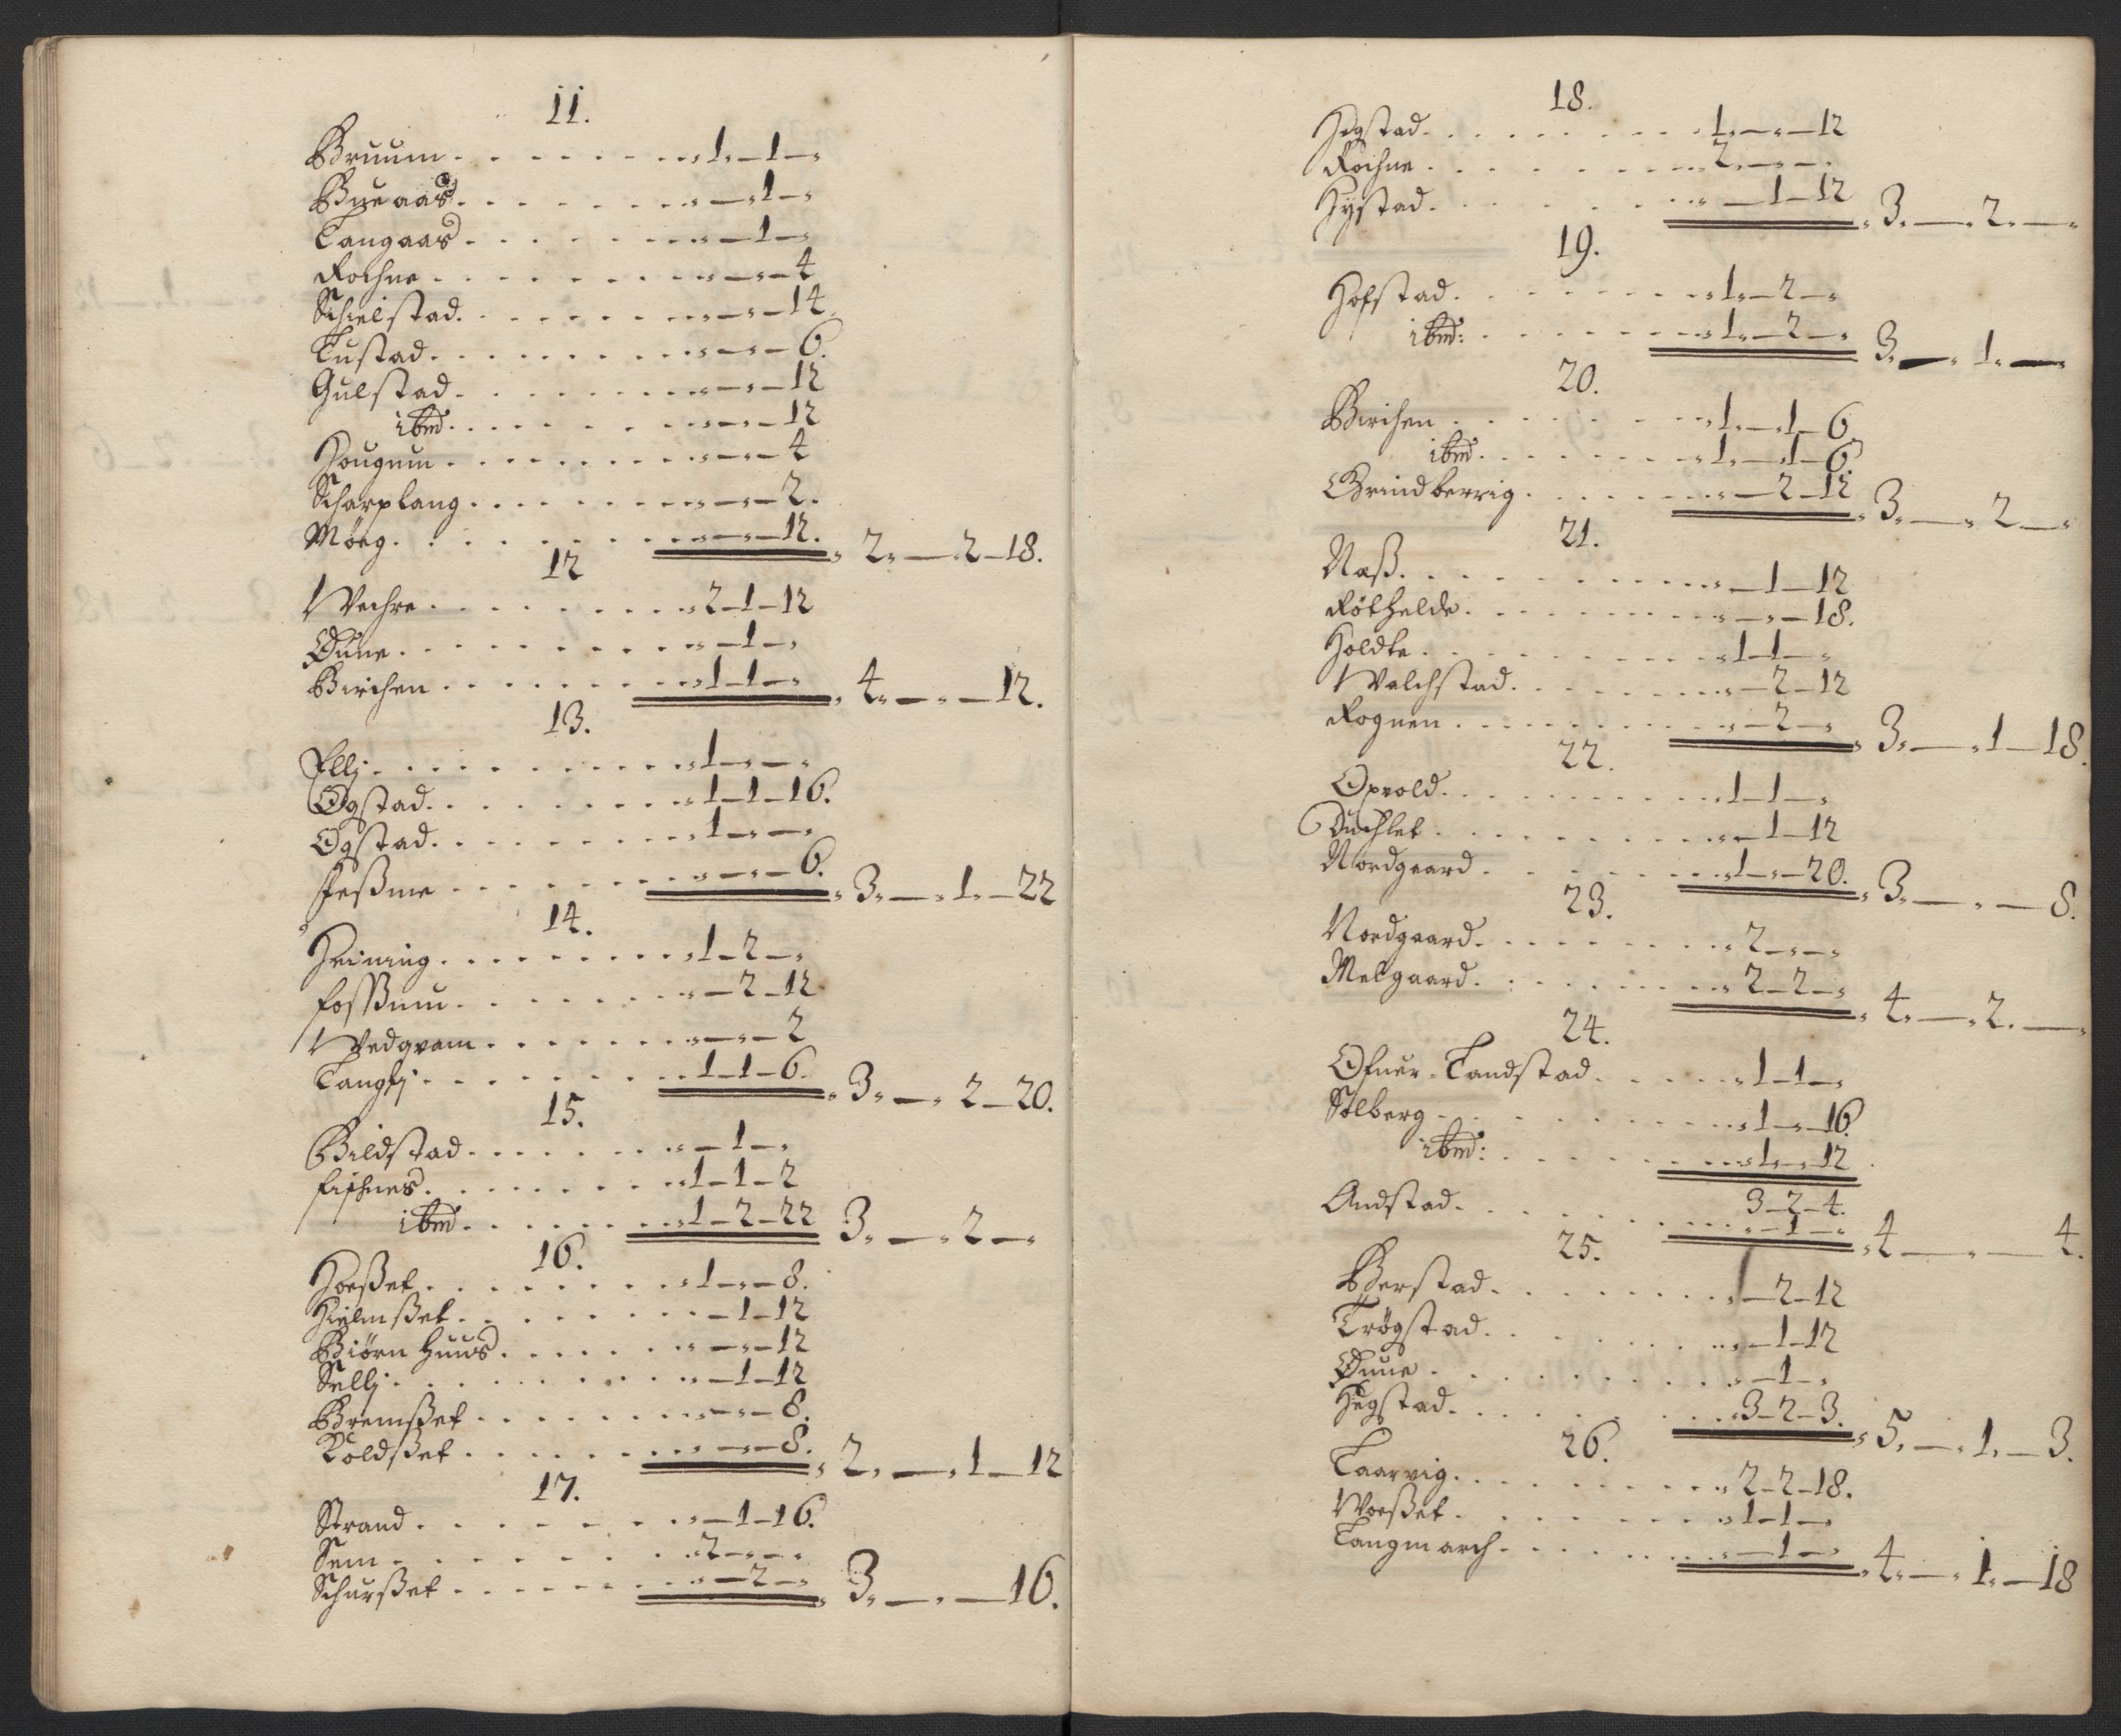 11.
Bruum . . . . . . . . . 1 – 1 – „
Bye aas . . . . . . . „ – 1 – „
Langaas . . . . . . . „ – 1 – „
Rochne . . . . . . . . „ – „ – 4
Schielstad . . . . . . . „ – „ – 14.
Tustad . . . . . . . . „ – „ – 6.
Gulstad . . . . . . . . „ – „ – 12
ibm . . . . . . . . „ – „ – 12
Hougum . . . . . . . . „ – „ – 4
Scharplang . . . . . . . „ – „ – 2.
Möeg . . . . . . . . „ – „ – 12. „ 2„ – 2 – 18.
12
Wechre . . . . . . . . „ 2 – 1 – 12
Oune . . . . . . . . „ – 1 – „
Birchen . . . . . . . . „ 1 – 1 – „ „ 4„ – „ – 12.
13.
Ellj . . . . . . . . . „ 1 – „ – „
Ogstad . . . . . . . . „ 1 – 1 – 16.
Ogstad . . . . . . . . „ 1 – „ – „
Feßme . . . . . . . „ – „ – 6. „ 3„ – „ 1„ – 22
14.
Heining . . . . . . . . „ 1 – 2 – „
Fossßum . . . . . . . „ – 2 – 12
Wedgvam . . . . . . . „ – „ – 2
Langlj . . . . . . . . 1 – 1 – 6. „ 3„ – „ 2 – 20.
15.
Bildstad . . . . . . „ – 1 – „
Fischnes . . . . . . . „ 1 – 1 – 2
ibm . . . . . . „ 1 – 2 – 22 3„ – „ 2 – „
16.
Hoeßet . . . . . . . . „ 1 – „ – 8.
Hielmßet . . . . . . . – 1 – 12
Biörn Huus . . . . . . „ – „ – 12
Sellj . . . . . . . . „ – 1 – 12
Bremßet . . . . . . . „ – „ – 8.
Koldßet . . . . . . . „ – „ – 8. „ 2„ – „ 1 – 12
17.
Strand . . . . . . . „ – 1 – 16.
Sem . . . . . . . . „ 2 – „ – „
Schurßet . . . . . . . „ – 2 – „ „ 3„ – „ – 16.
18.
Hegstad . . . . . . . . 1„ – „ – 12
Rochne . . . . . . . . 2„ – „ – „
Hystad . . . . . . . „ – 1 – 12 „ 3„ – „ 2„ – „
19.
Hofstad . . . . . . . „ 1„ – 2 – „
ibm: . . . . . . . „ 1„ – 2 – „ 3„ – „ 1„ – „
20.
Birchen . . . . . . . „ 1„ – „ 1 – 6
ibm: . . . . . . . „ 1„ – „ 1 – 6
Grindberrig . . . . . . . „ – 2 – 12 „ 3„ – „ 2 – „
21.
Næß . . . . . . . . . „ – 1 – 12
Röthelde . . . . . . . . „ – „ – 18.
Holdte . . . . . . . . „ 1 – 1 – „
Walchstad . . . . . . . „ – 2 – 12
Rognen . . . . . . . . „ – 2 – „ „ 3„ – „ 1 – 18.
22.
Opvold . . . . . . . . „ 1 – 1 – „
Duchlet . . . . . . . . „ – 1 – 12
Nordgaard . . . . . . . „ 1 – „ – 20. „ 3„ – „ – 8.
23.
Nordgaard . . . . . . . „ 2 – „ – „
Melgaard . . . . . . . „ 2 – 2 – „ „ 4„ – „ 2„ – „
24.
Ofuer-Landstad . . . . . „ 1 – 1 – „
Solberg . . . . . . . . „ 1 – „ – 16.
ibm: . . . . . . . „ 1„ – „ 12
3 – 2 – 4.
Andstad . . . . . . . „ – 1 – „ „ 4 – „ – 4.
25.
Berstad . . . . . . . . „ – 2 – 12
Trögstad . . . . . . . „ – 1 – 12
Oune . . . . . . . . „ – 1 – „
Hegstad . . . . . . . „ 3 – 2 – 3. „ 5„ – „ 1„ – 3.
26.
Taarvig . . . . . . . . „ 2 – 2 – 18.
Woeßet . . . . . . . . „ 1 – 1 – „
Langmarch . . . . . . . „ – 1 – „ „ 4„ – „ 1„ – 18